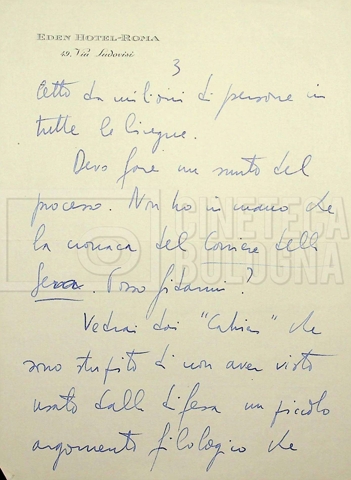 EDEN HOTEL-ROMA
49, Via Ludovisi
3
letto da milioni di persone in
tutte le lingue.
Devo fare un sunto del
processo. Non ho in mano che
la cronaca del Corriere della
Sera. Posso fidarmi?
Vedrai dai "Cahiers" che
sono stupito di non aver visto
usato dalla difesa un piccolo
argomento filologico che
CINETECA
BOLOGNA